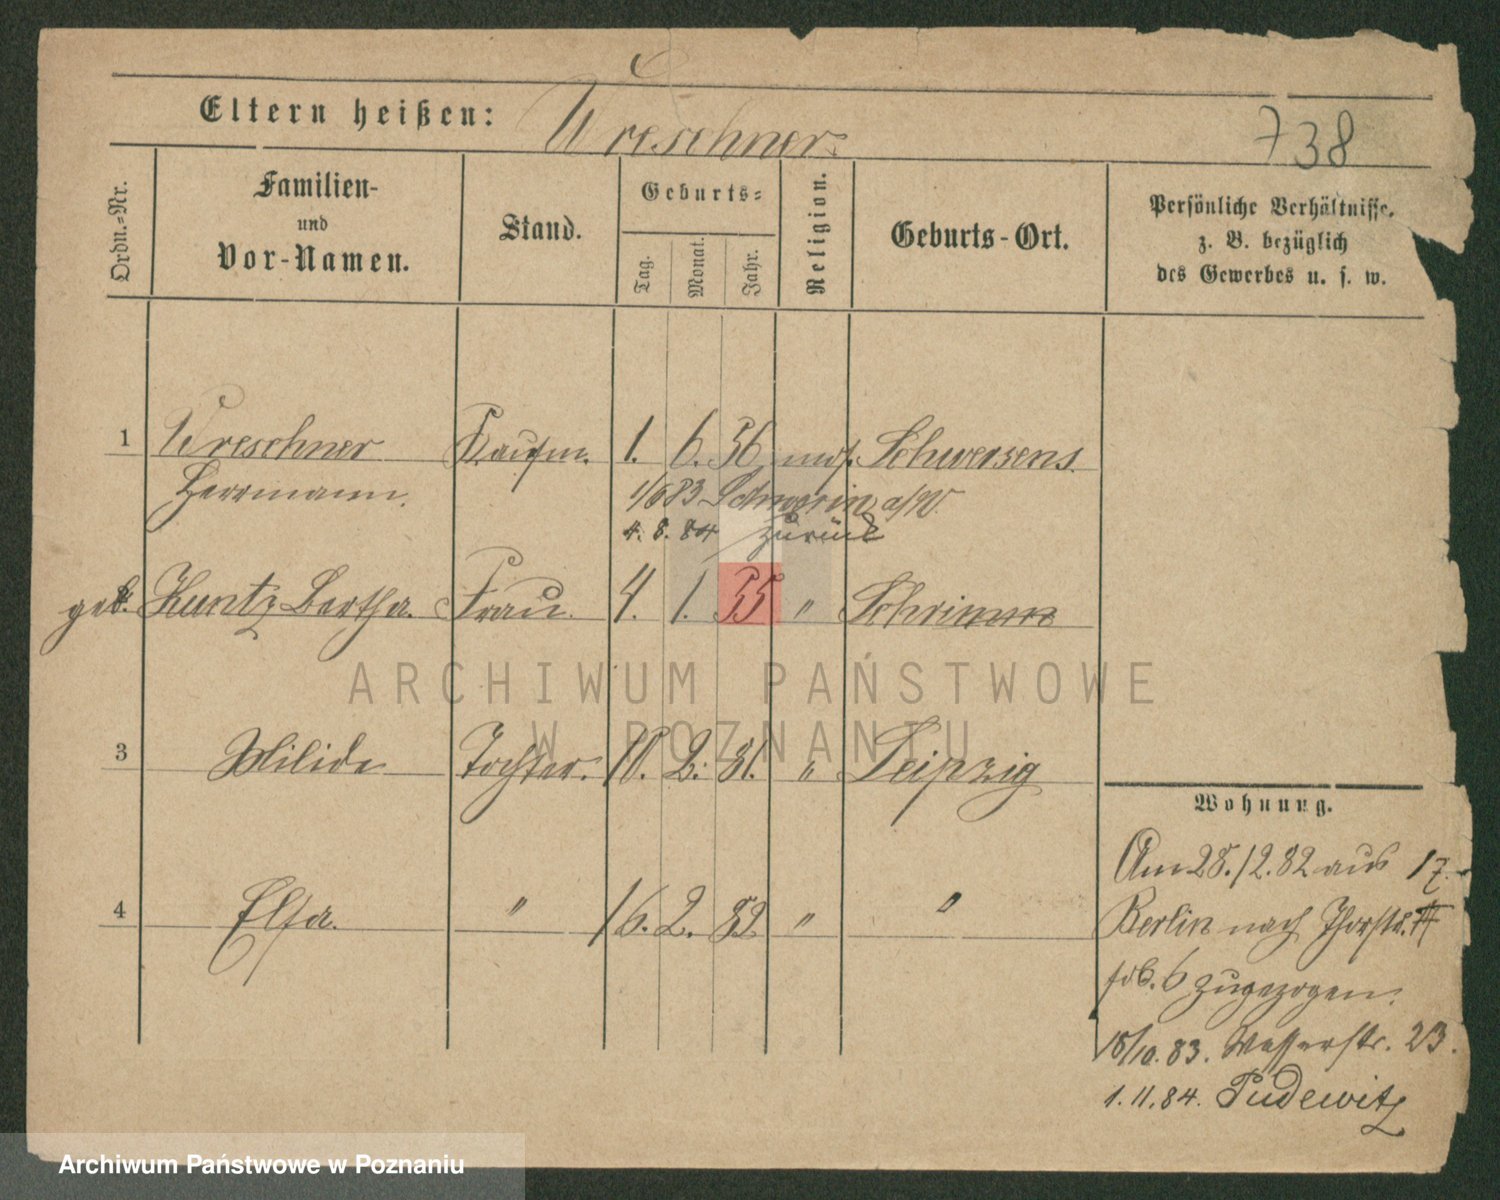 Eltern heißen: Wreschner. 738
Ordn.-Nr. Familien- und Vor-Namen. Stand. Geburts- Tag. Monat. Jahr. Religion. Geburts-Ort. Persönliche Verhältnisse. z. B. bezüglich des Gewerbes u. s. w.
1 Wreschner Kaufm. 1. 6. 56 mos. Schwersens.
Herrmann. 1/6 83 Schwerin a/W.
4. 8. 84 zurück
geb. Kuntz Bertha. Frau. 4. 1. 55 " Schrimm
3 Milide Tochter. 10. 2. 81. " Leipzig
4 Elsa. " 16. 2. 82 " "
Wohnung.
Am 28.12.82 aus 17.
Berlin nach Thorstr.
zugezogen.
18/10. 83. Wasserstr. 23.
1. 11. 84. Pudewitz
ARCHIWUM PAŃSTWOWE
W POZNANIU
Archiwum Państwowe w Poznaniu